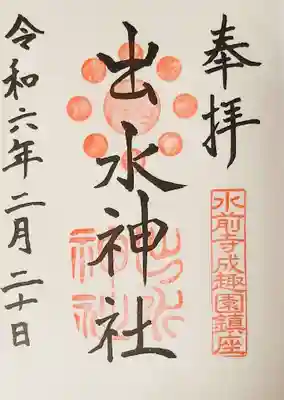 奉拝
水前寺成趣園鎮座
出水神社
出水神社
令和六年二月二十日